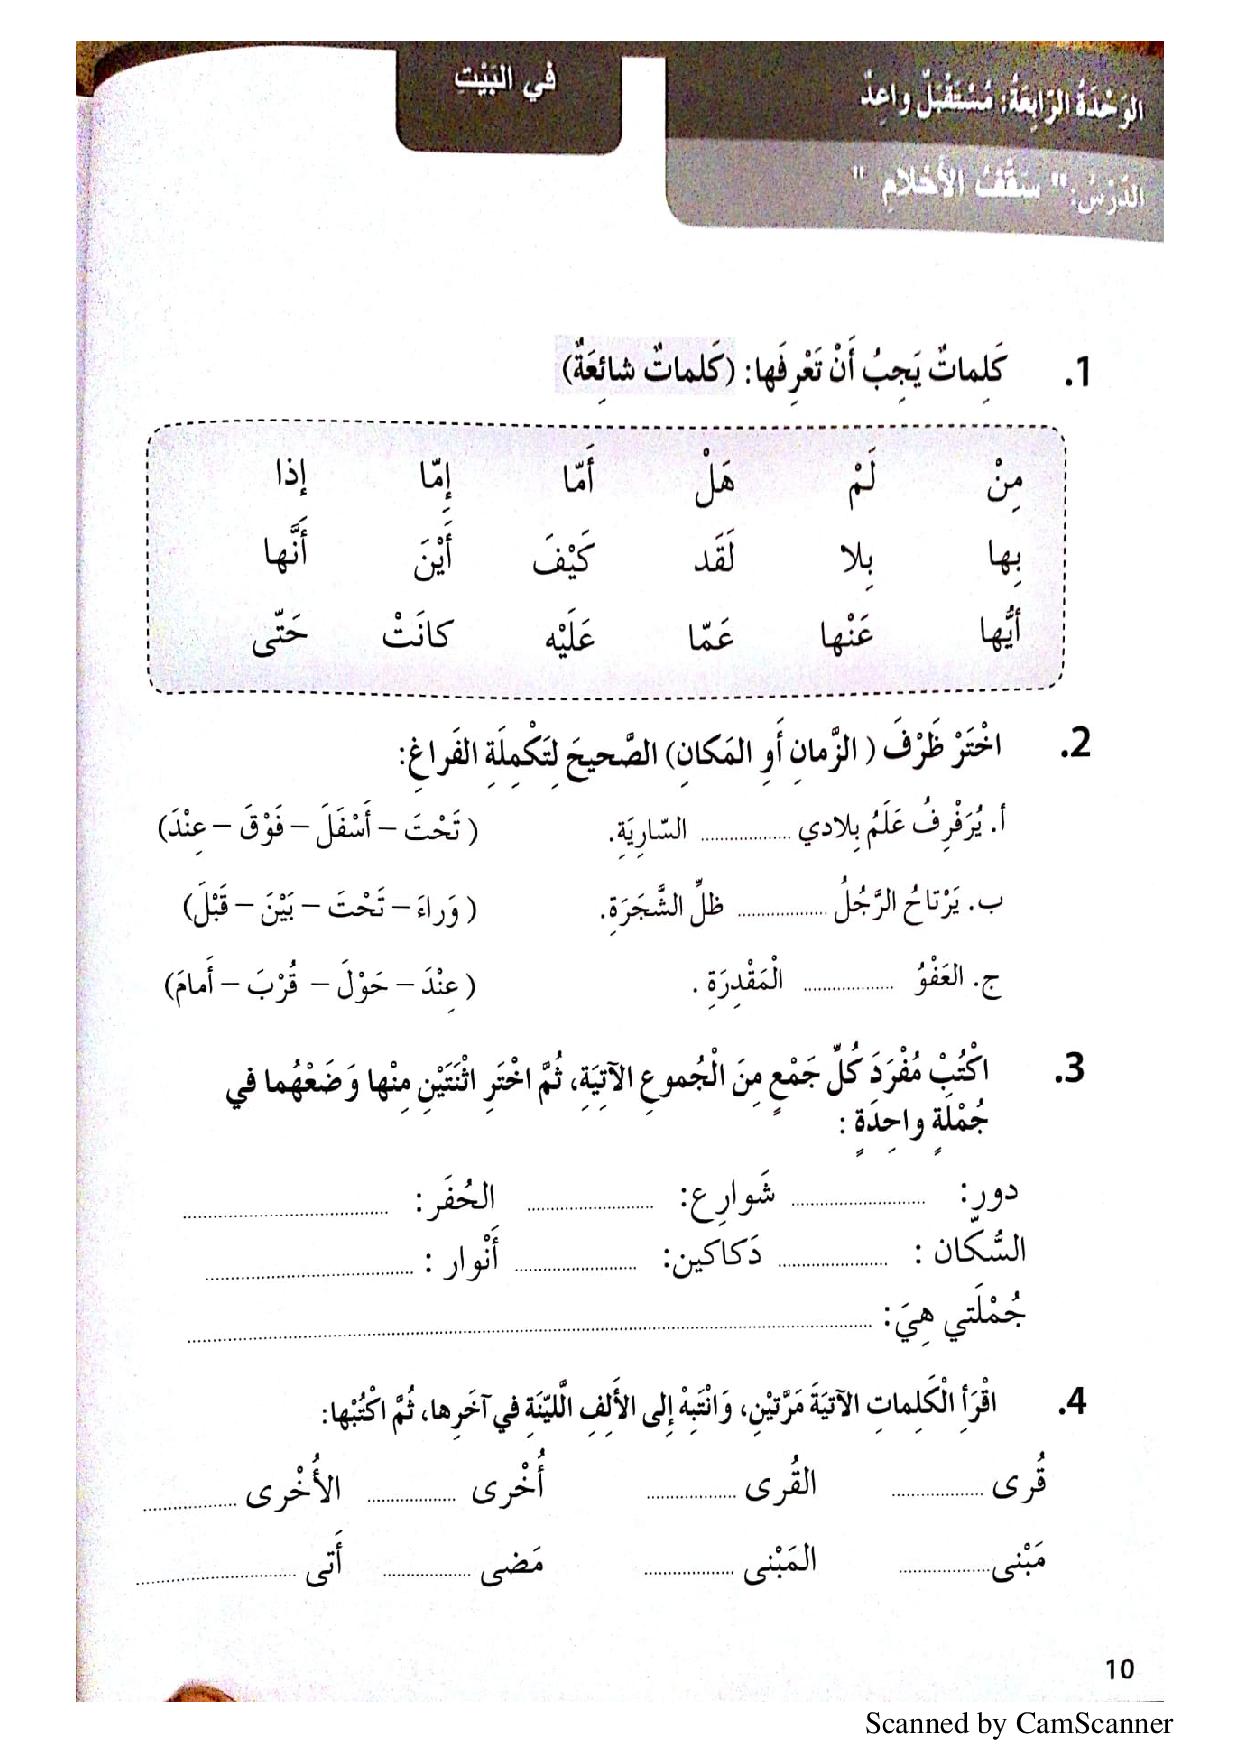 في البَيْت
الوَحْدَةُ الرّابِعَةُ: مُسْتَقْبَلٌ واعِدٌ
الدَّرْسُ: " سَقْفُ الأَحْلامِ "
1. كَلِماتٌ يَجِبُ أَنْ تَعْرِفَها: (كَلِماتٌ شائِعَةٌ)
مِنْ لَمْ هَلْ أَمّا إِمّا إذا
بِها بِلا لَقَد كَيْفَ أَيْنَ أَنَّها
أيُّها عَنْها عَمّا عَلَيْه كانَتْ حَتّى
2. اخْتَرْ ظَرْفَ ( الزَّمانِ أَوِ المَكانِ) الصَّحيحَ لِتَكْمِلَةِ الفَراغِ:
أ. يُرَفْرِفُ عَلَمُ بِلادي .................. السّارِيَةِ. ( تَحْتَ – أَسْفَلَ – فَوْقَ – عِنْدَ)
ب. يَرْتاحُ الرَّجُلُ .................. ظلِّ الشَّجَرَةِ. ( وَراءَ – تَحْتَ – بَيْنَ – قَبْلَ)
ج. العَفْوُ .................. الْمَقْدِرَةِ . ( عِنْدَ – حَوْلَ – قُرْبَ – أَمامَ)
3. اكْتُبْ مُفْرَدَ كُلِّ جَمْعٍ مِنَ الْجُموعِ الآتِيَةِ، ثُمَّ اخْتَرِ اثْنَتَيْنِ مِنْها وَضَعْهُما في
جُمْلَةٍ واحِدَةٍ :
دور: .................. شَوارِع: .................. الحُفَر: ..................
السُّكّان : .................. دَكاكين: .................. أَنْوار : ..................
جُمْلَتي هِيَ: ..................
4. اقْرَأِ الْكَلِماتِ الآتِيَةَ مَرَّتَيْنِ، وَانْتَبِهْ إِلى الأَلِفِ اللَّيِّنَةِ في آخَرِها، ثُمَّ اكْتُبْها:
قُرى .................. القُرى .................. أُخْرى .................. الأُخْرى ..................
مَبْنى .................. المَبْنى .................. مَضى .................. أَتى ..................
10
Scanned by CamScanner